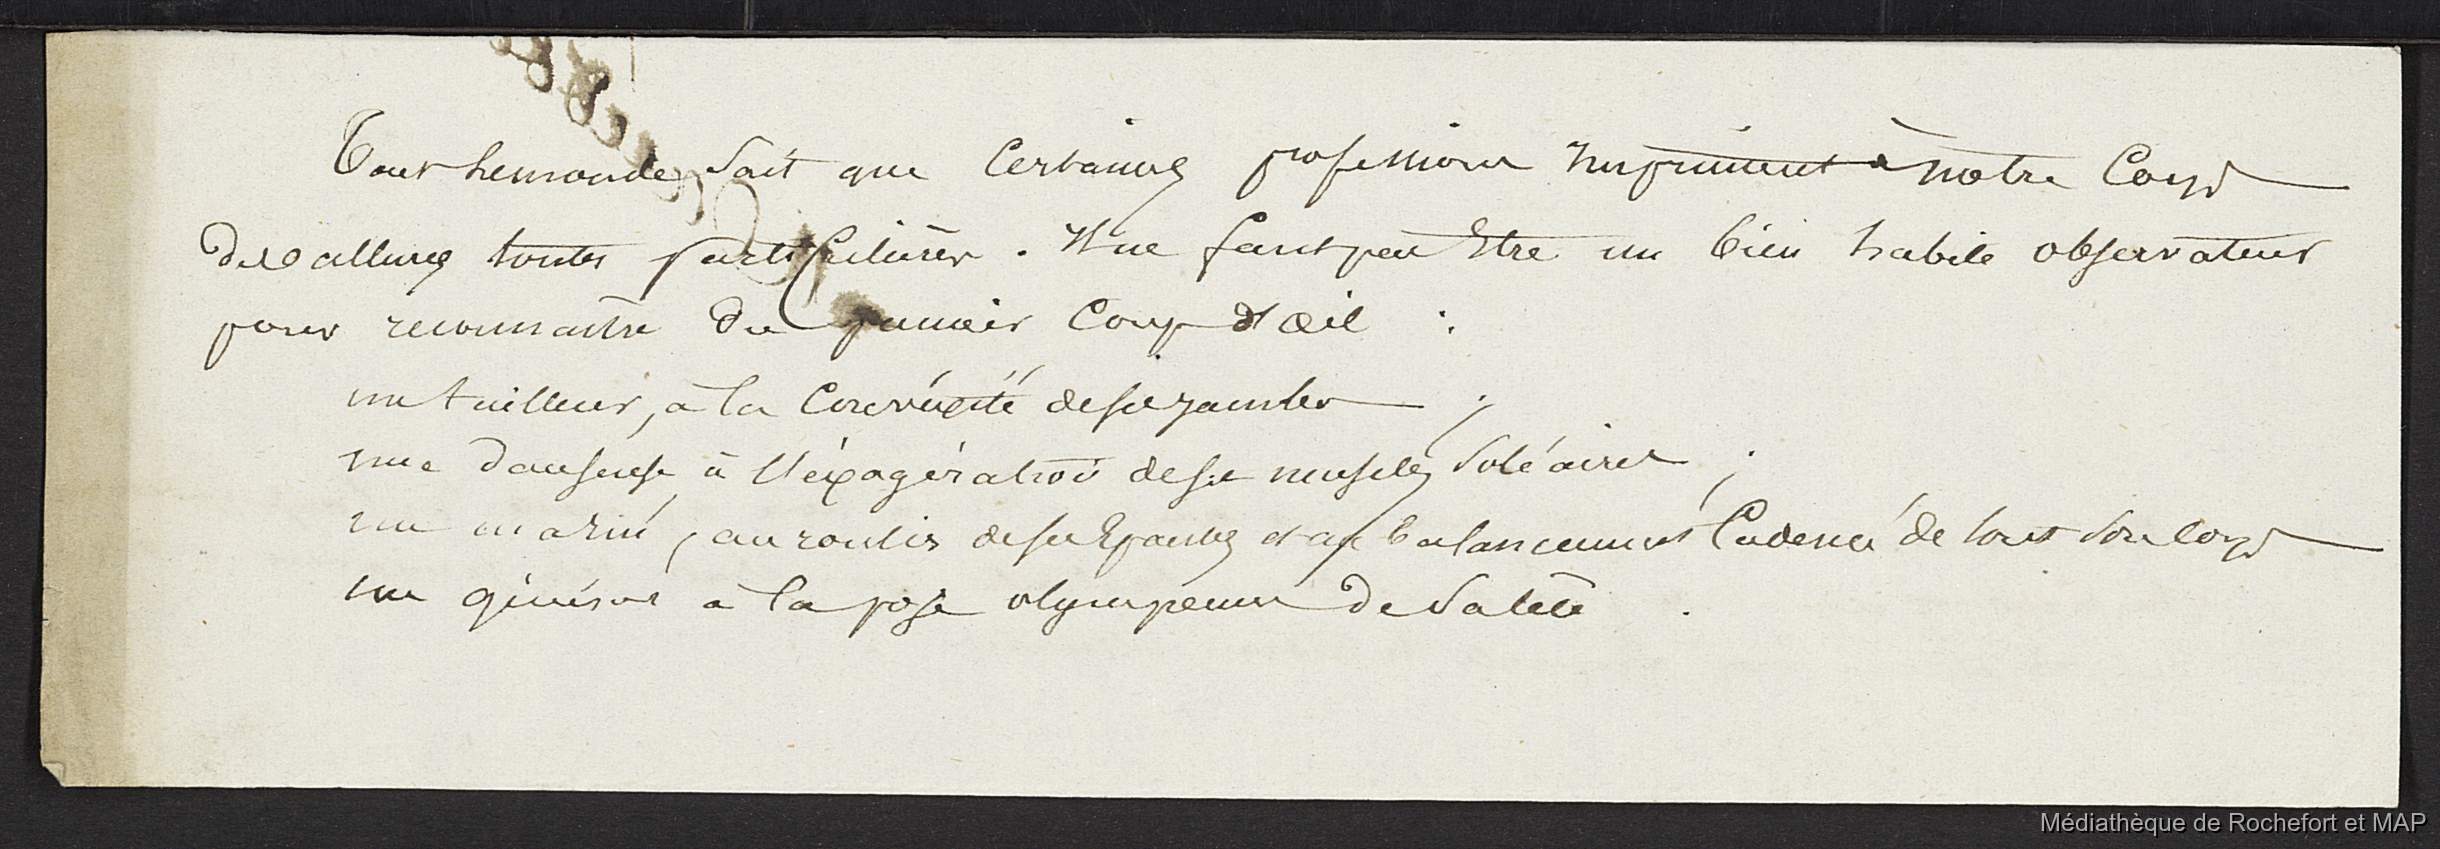 Tout le monde sait que certaines professions impriment à notre corps
des allures toutes particulières. Il ne faut pas être un bien habile observateur
pour reconnaître du premier coup d'œil :
un tailleur, à la convéxité de ses jambes ;
une danseuse à l'éxagération de ses muscles soléaires ;
un marin, au roulis de ses épaules et au balancement cadencé de tout son corps
un général à la pose olympienne de sa tête.
Médiathèque de Rochefort et MAP